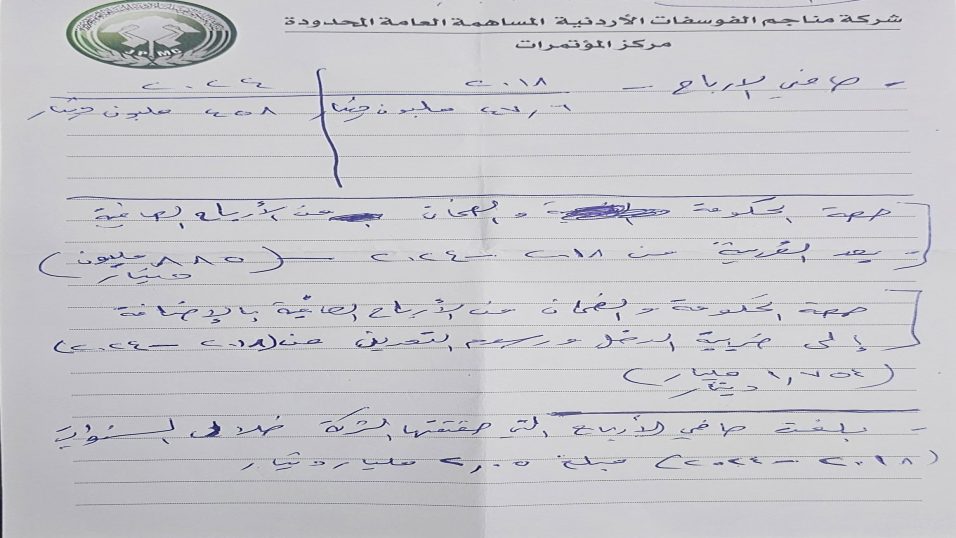 شركة مناجم الفوسفات الأردنية المساهمة العامة المحدودة
مركز المؤتمرات
JPMC
- صافي الارباح - ٢٠١٨ ٢٠٢٤
٤٧,٦ مليون دينار ٤٥٨ مليون دينار
حصة الحكومة و الضمان من الأرباح الصافية
بعد الضريبة من ٢٠١٨ - ٢٠٢٤ - (٨٨٥ مليون دينار)
حصة الحكومة و الضمان من الأرباح الصافية بالإضافة
إلى ضريبة الدخل و رسوم التعدين من (٢٠١٨ - ٢٠٢٤)
(١,٧٥٤ مليار دينار)
- بلغت صافي الأرباح التي حققتها الشركة خلال السنوات
(٢٠١٨ - ٢٠٢٤) مبلغ ٢,٠٥ مليار دينار